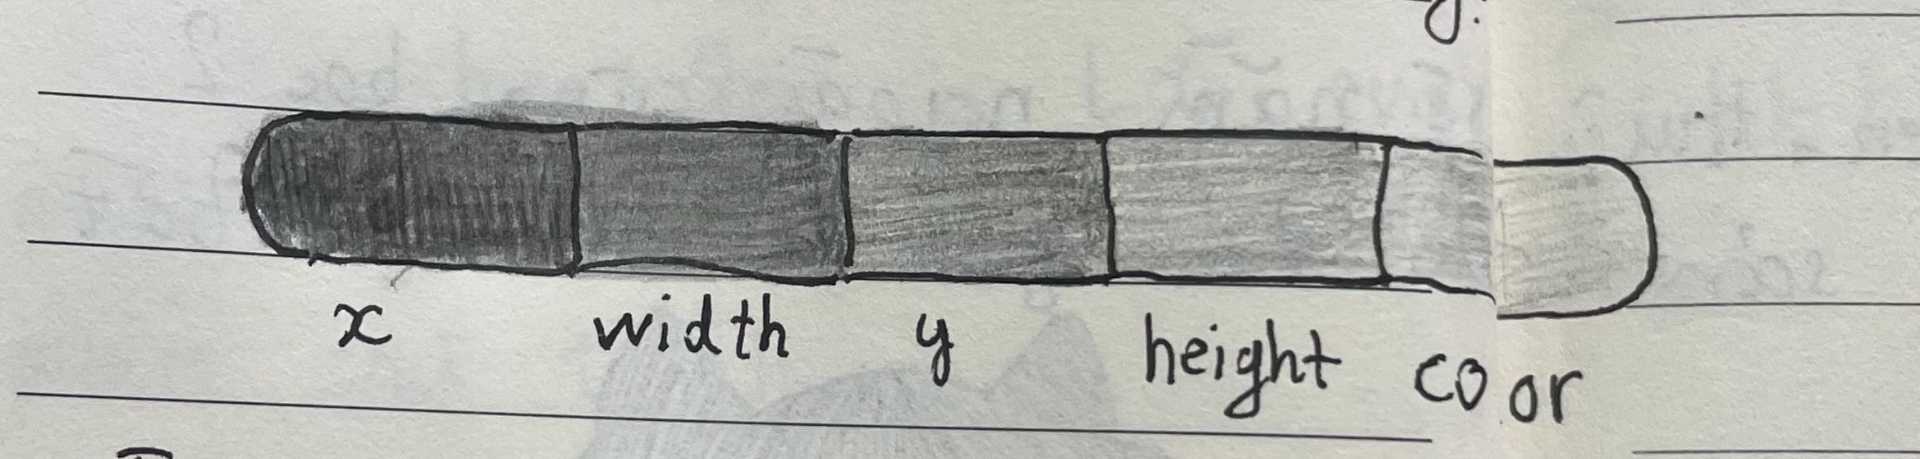 x width y height co or